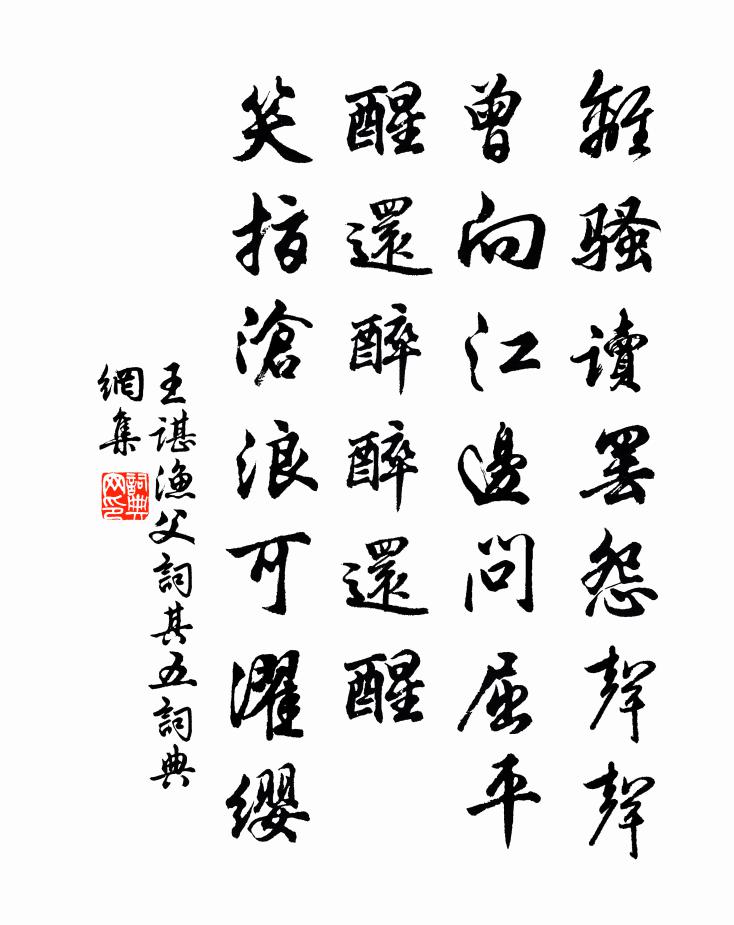 離騷讀罷怨聲聲
曾向江邊問屈平
醒還醉醉還醒
笑指滄浪可濯纓
王諶漁父詞其五詞典
網集
詞典網印